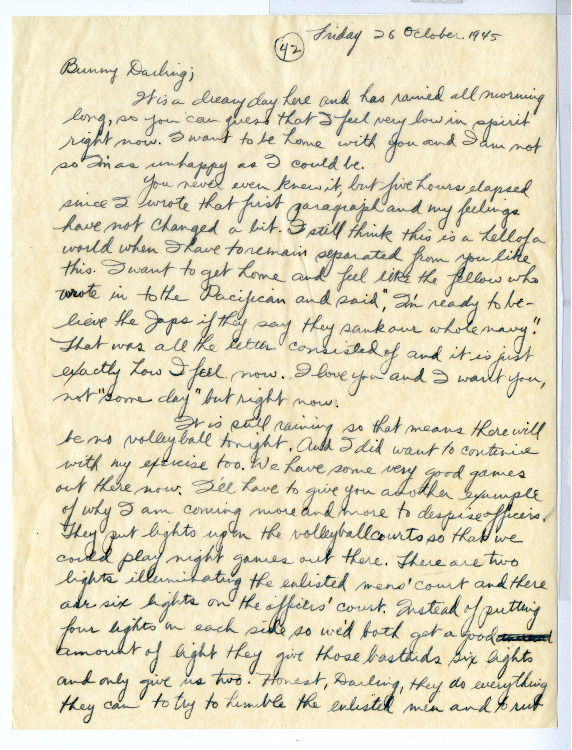 Friday 26 October 1945
42
Bunny Darling;
It is a dreary day here and has rained all morning
long, so you can guess that I feel very low in spirit
right now. I want to be home with you and I am not
so I'm as unhappy as I could be.
You never even knew it, but five hours elapsed
since I wrote that first paragraph and my feelings
have not changed a bit. I still think this is a hell of a
world when I have to remain separated from you like
this. I want to get home and feel like the fellow who
wrote in to the Pacifican and said, "I'm ready to be-
lieve the Japs if they say they sank our whole navy."
That was all the letter consisted of and it is just
exactly how I feel now. I love you and I want you,
not "some day" but right now.
It is still raining so that means there will
be no volleyball tonight. And I did want to continue
with my exercise too. We have some very good games
out there now. I'll have to give you another example
of why I am coming more and more to despise officers.
They put lights up on the volleyball courts so that we
could play night games out there. There are two
lights illuminating the enlisted mens' court and there
are six lights on the officers' court. Instead of putting
four lights on each side so we'd both get a good
amount of light they give those bastards six lights
and only give us two. Honest, Darling, they do everything
they can to try to humble the enlisted men and to rub